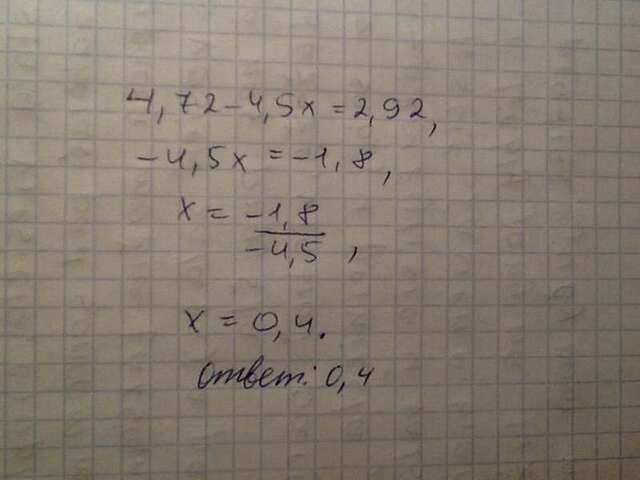 4,72-4,5x=2,92,
-4,5x=-1,8,
x= -1,8
-4,5 ,
x=0,4.
Ответ: 0,4